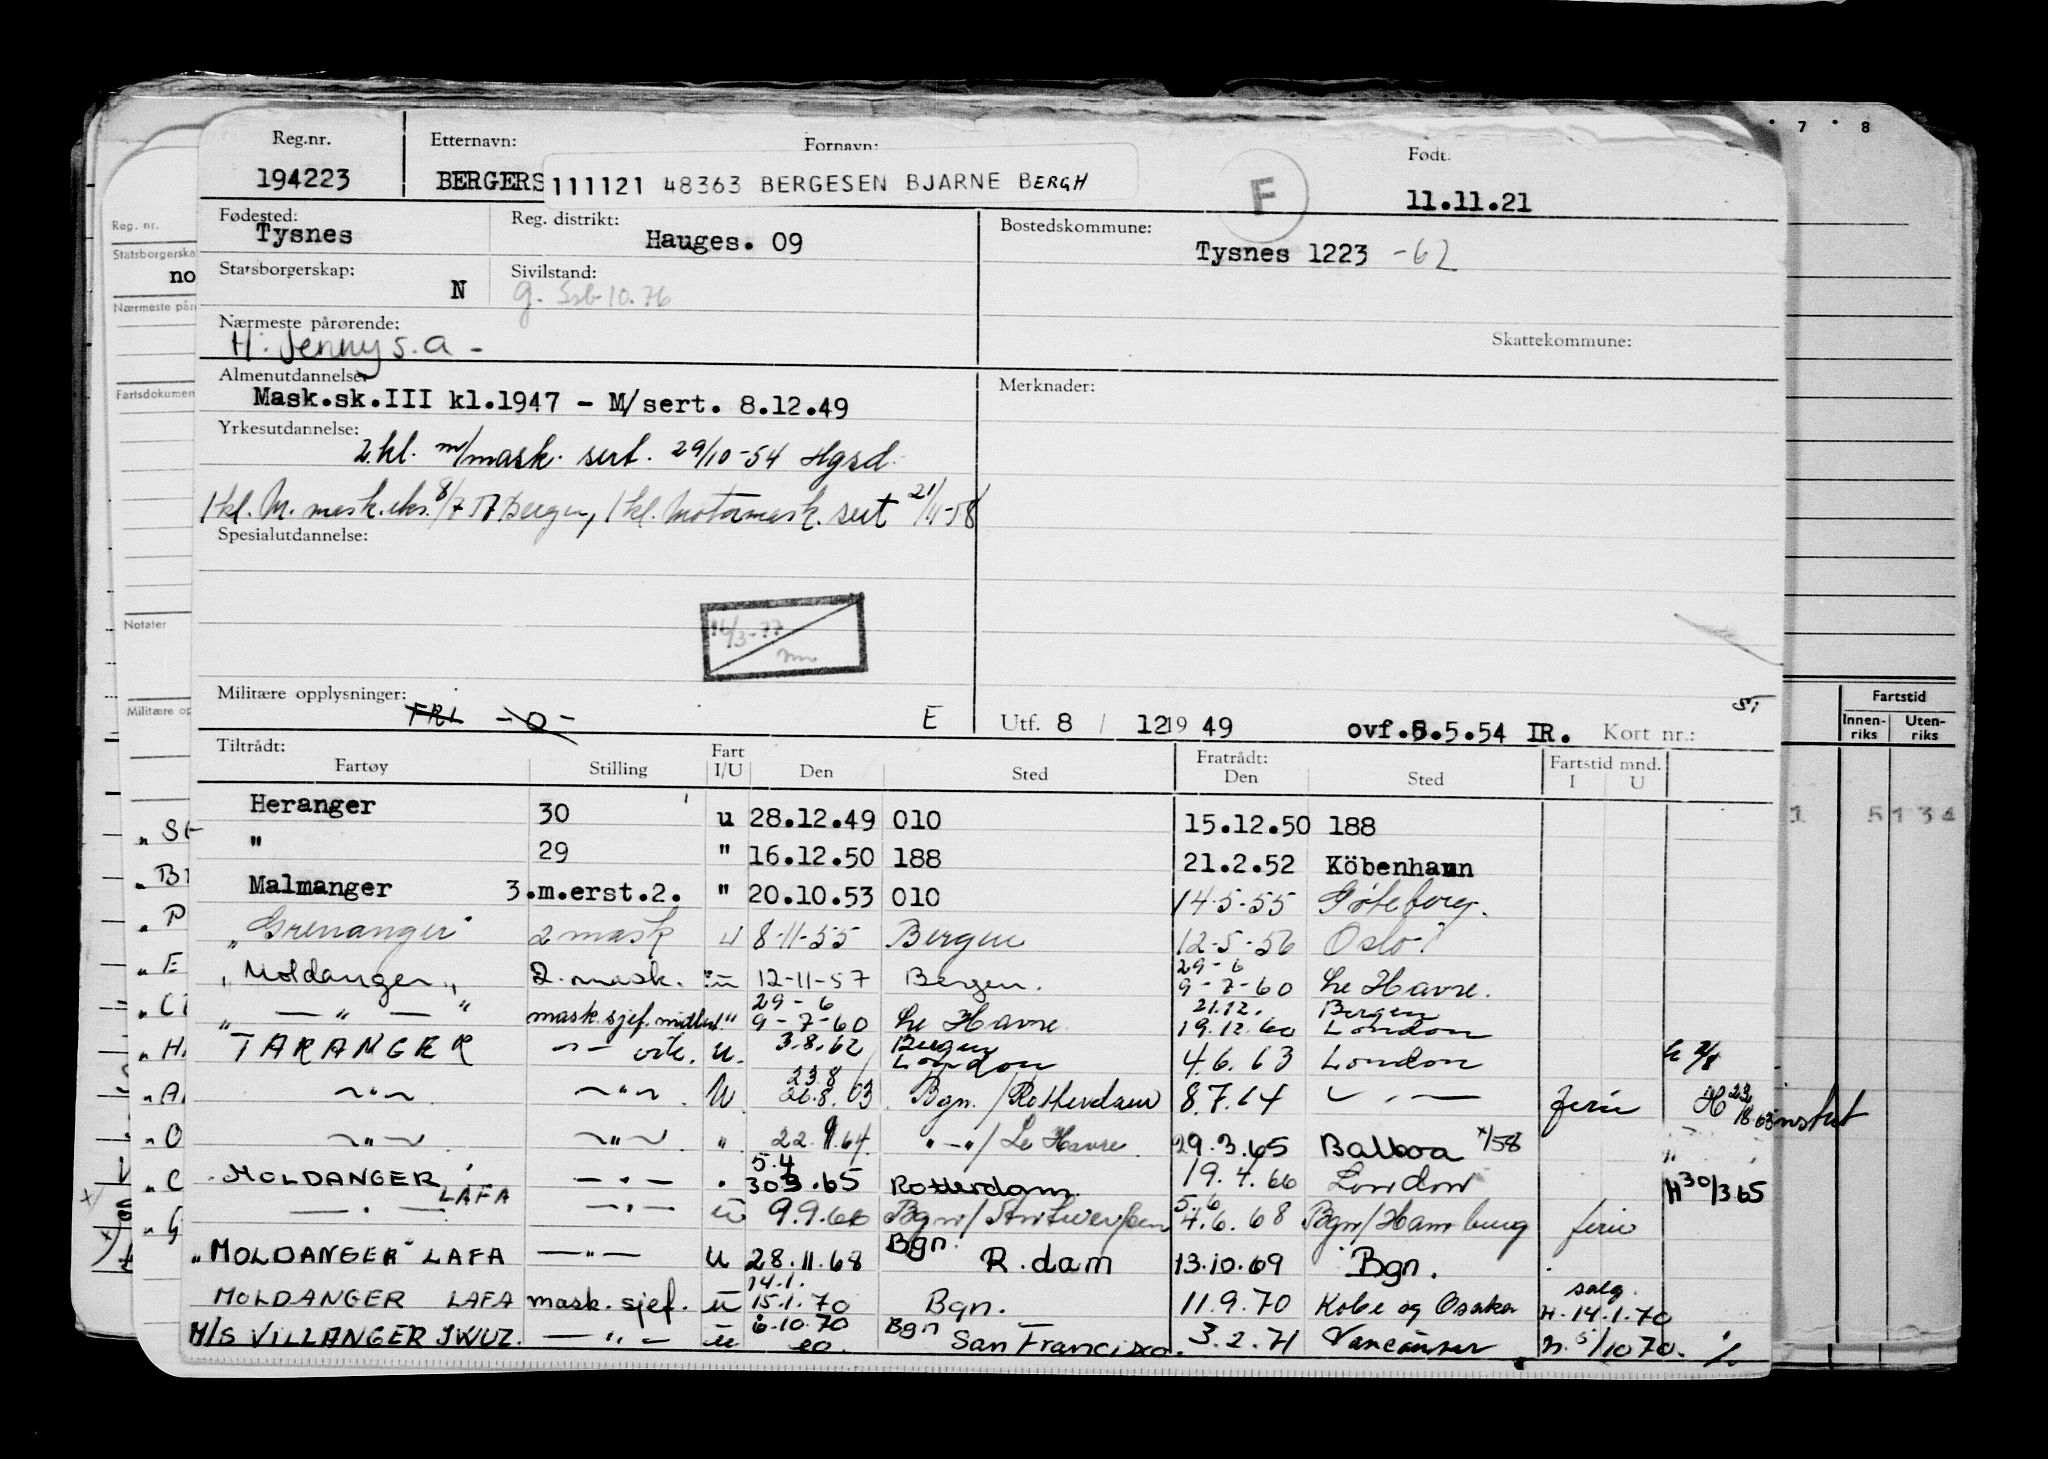 Reg.nr. Etternavn: Fornavn: Født:
194223 BERGERS 111121 48363 BERGESEN BJARNE BERGH F 11.11.21
Fødested: Reg. distrikt: Bostedskommune:
Tysnes Hauges. 09 Tysnes 1223 -62
Statsborgerskap: Sivilstand:
N g. 10.76
Nærmeste pårørende: Skattekommune:
H: Jenny s.a -
Almenutdannelse: Merknader:
Mask.sk.III kl.1947 - M/sert. 8.12.49
Yrkesutdannelse:
2.kl. m/mask. sert. 29/10-54 Hgsd.
1 kl. M. mask.eks. 8/7 57 Bergen, 1 kl. Motormask. sert 21/11-58
Spesialutdannelse:
16/3-77
Militære opplysninger:
FRI -0- E Utf. 8 / 12 19 49 ovf.8.5.54 IR. Kort nr.:
Tiltrådt: Fratrådt: Fartstid mnd.
Fartøy Stilling Fart I/U Den Sted Den Sted I U
Heranger 30 u 28.12.49 010 15.12.50 188
" 29 " 16.12.50 188 21.2.52 Köbenhavn
Malmanger 3.m.erst.2. " 20.10.53 010 14-5-55 Göteborg.
"Grenanger" 2 mask u 8-11-55 Bergen 12-5-56 Oslo
29-6
"Moldanger" 2. mask. u 12-11-57 Bergen. 9-7-60 Le Havre.
29-6 21.12. Bergen
" — " — " mask.sjef. " 9-7-60 Le Havre 19.12.60 London
3.8.62 Bergen
TARANGER u. London 4.6.63 London
23.8
~"~ ~"~ u. 26.8.63 Bgn./Rotterdam 8.7.64 ferie
~"~ ~"~ " 22.9.64 "-"/Le Havre 29.3.65 Balboa
5.4
MOLDANGER - " - 30.3.65 Rotterdam. 19.4.66 London H 30/3 65
LAFA
5.6
— " — — " — u 9.9.66 Bgn/Antwerpen 4.6.68 Bgn/Hamburg ferie
Bgn.
"MOLDANGER" LAFA — " — u 28.11.68 R.dam 13.10.69 Bgn.
14.1. salg.
MOLDANGER LAFA mask.sjef. u 15.1.70 Bgn. 11.9.70 Kobe og Osaka H. 14.1.70
6.10.70 Bgn
M/S VILLANGER JWUZ. — " — u San Francisco. 3.2.71 Vancouver H. 5/10 70.
Reg. nr.
Statsborgerska
no
Nærmeste pår
Fartsdokumen
Notater
Militære op
7 8
Fartstid
Innen-riks Uten-riks
1 5 1 3 4